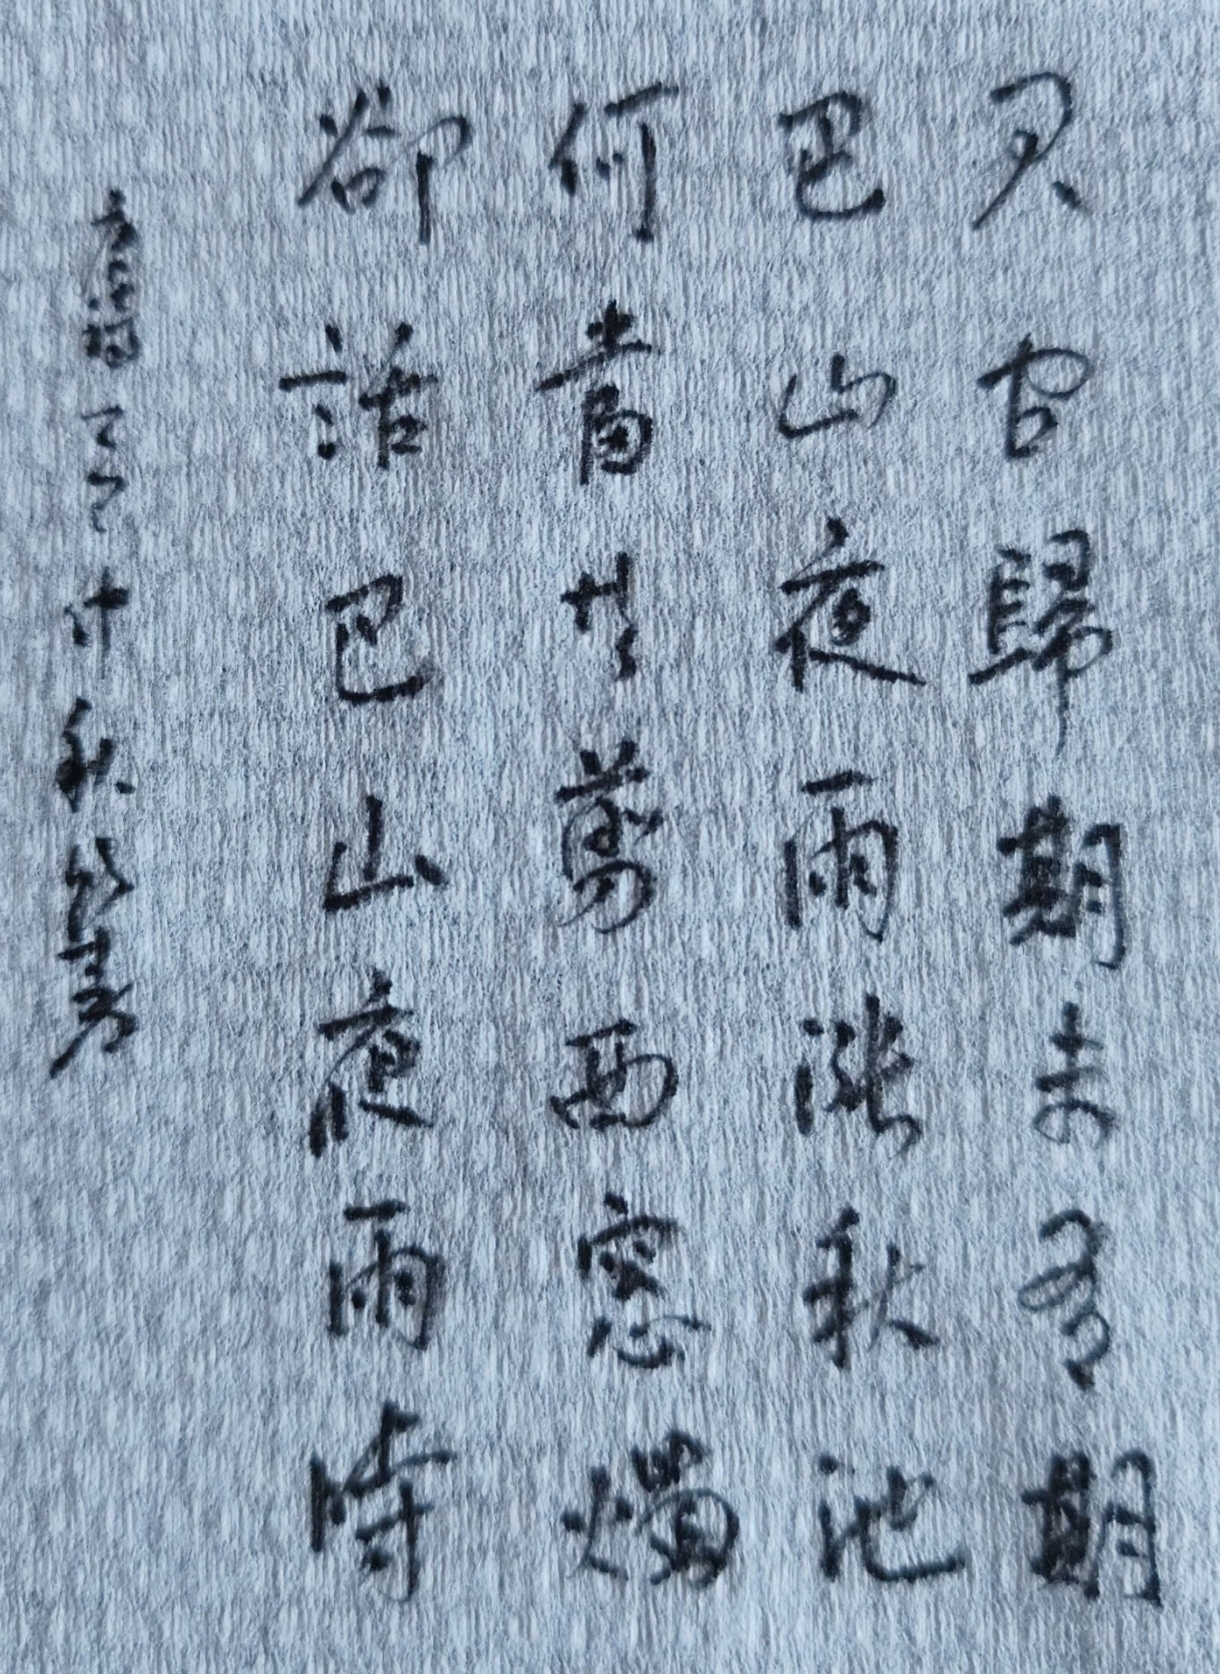 君問歸期未有期
巴山夜雨漲秋池
何當共剪西窓燭
卻話巴山夜雨時
中秋